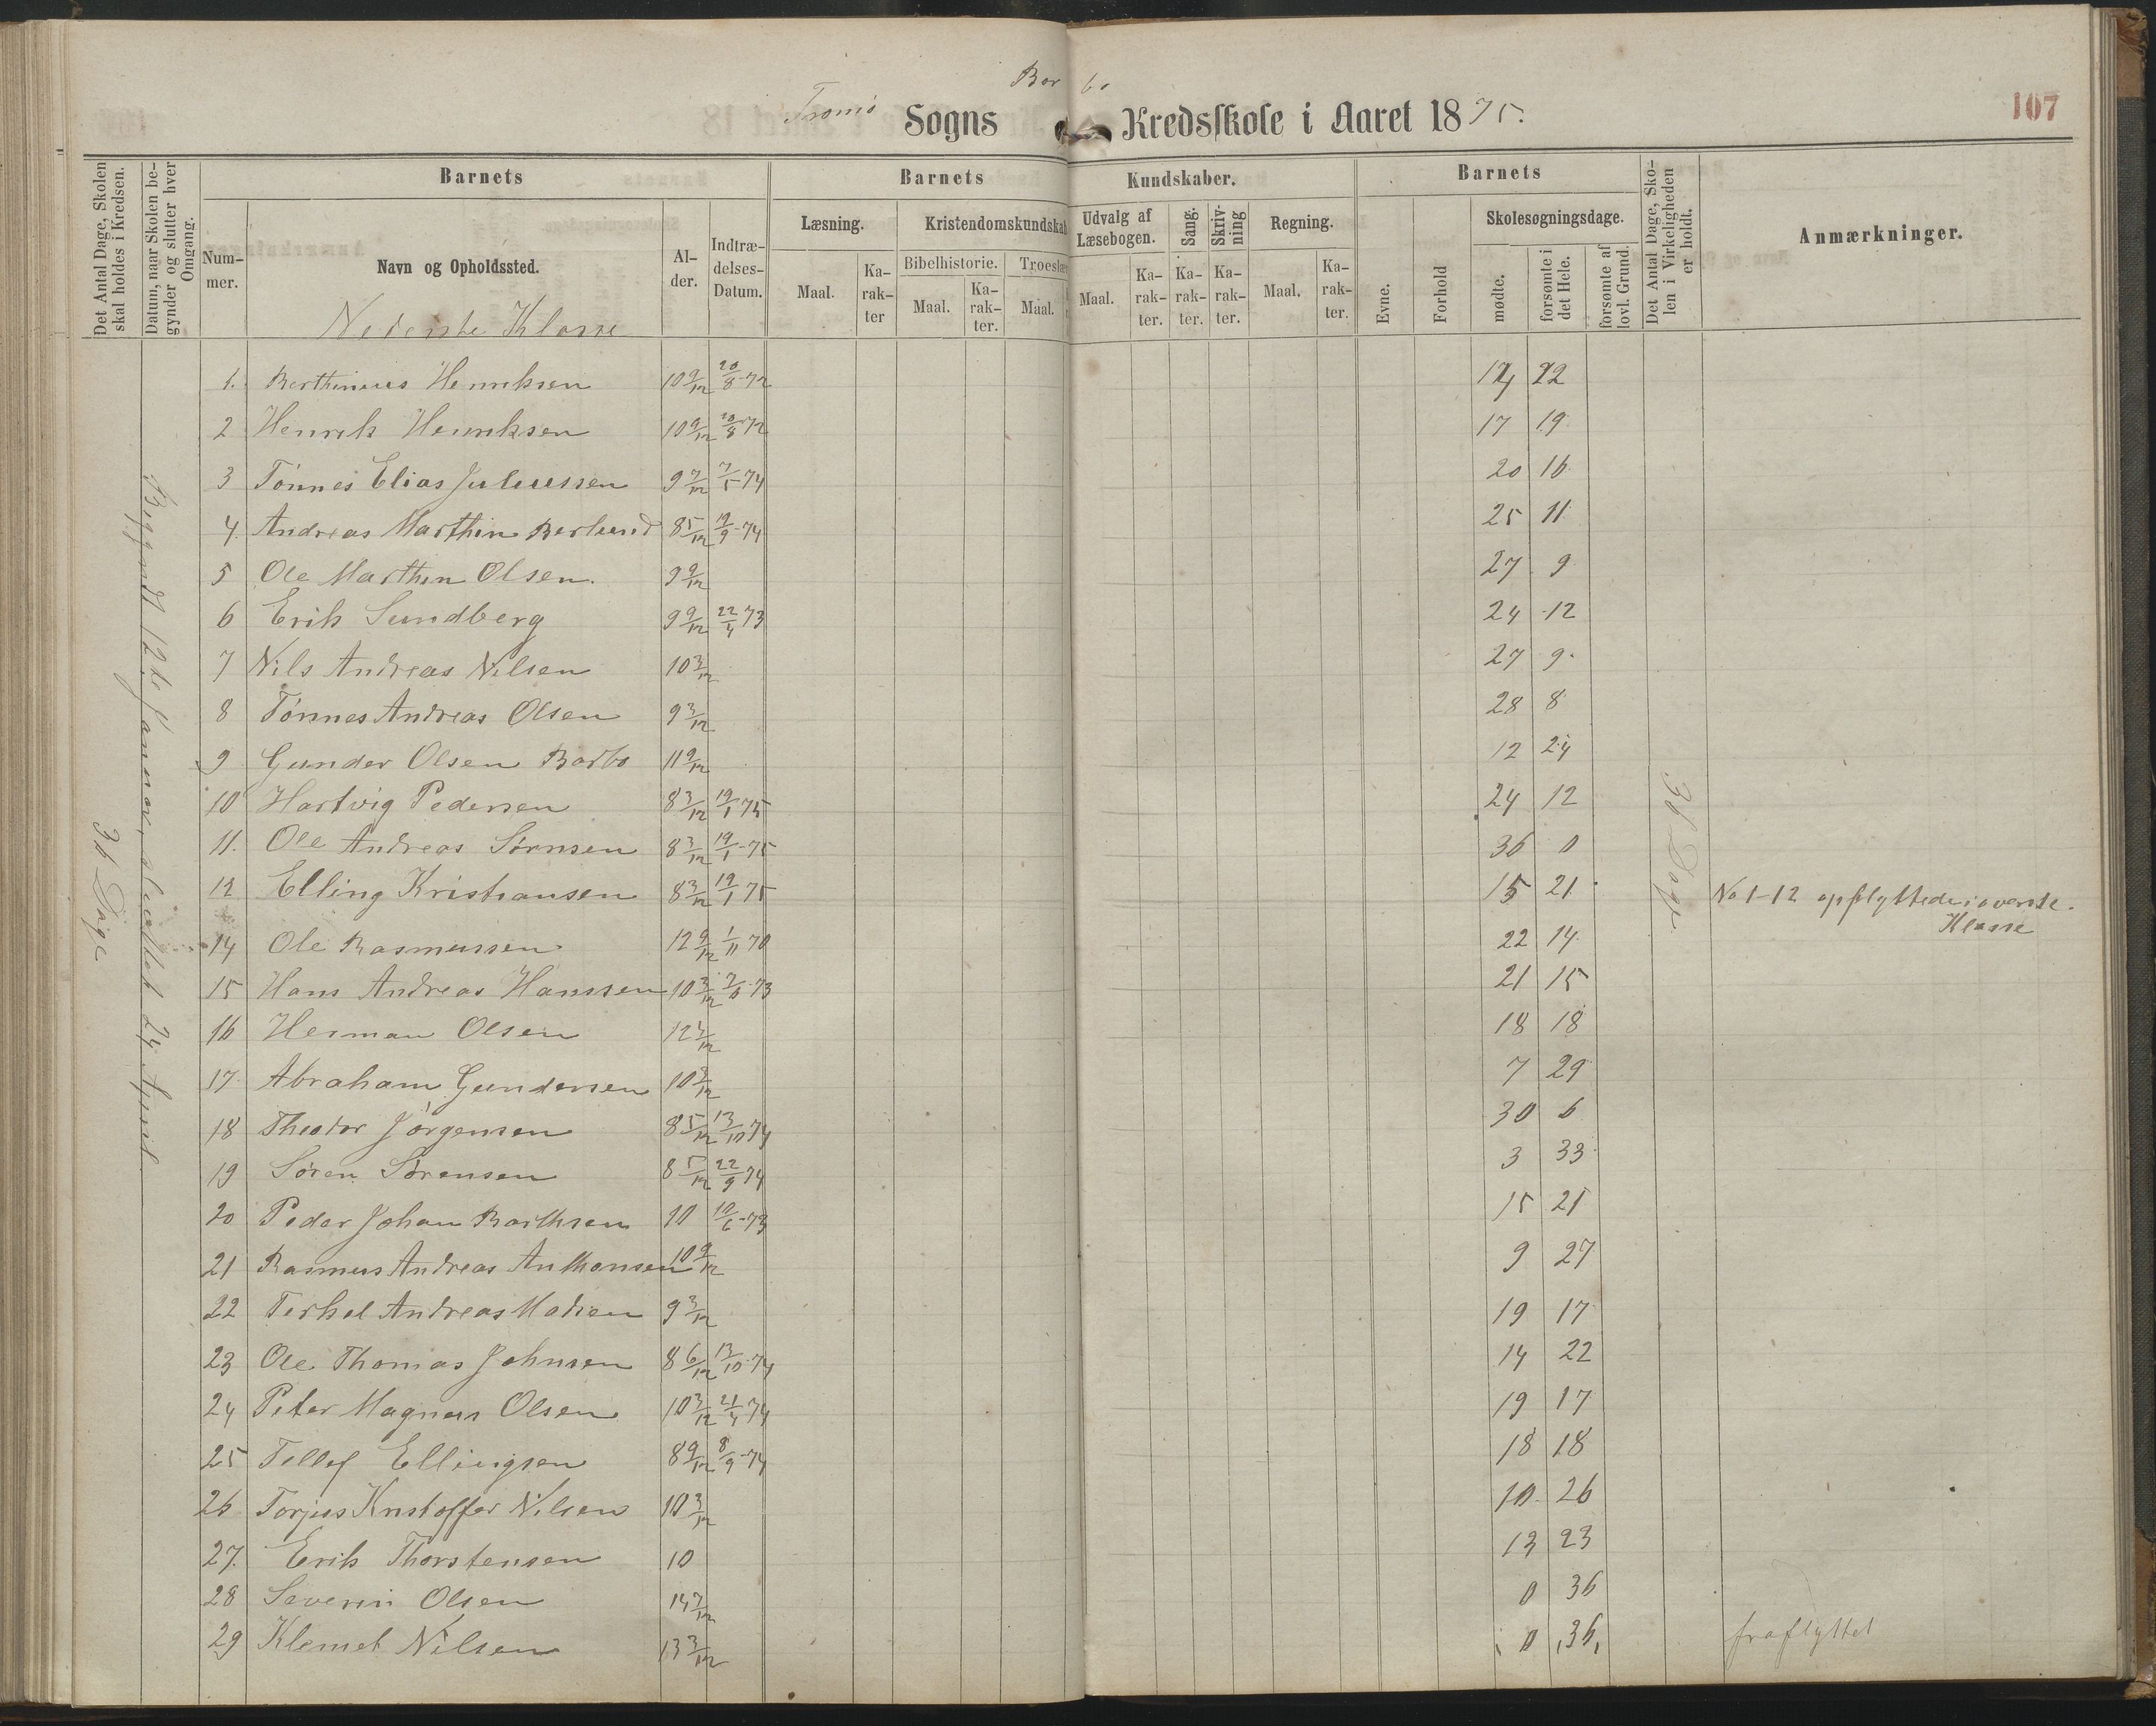 107
Barbo
Tromø Sogns Kredsskole i Aaret 1875.
Det Antal Dage, Skolen skal holdes i Kredsen.
Datum, naar Skolen begynder og slutter hver Omgang.
Barnets
Nummer.
Navn og Opholdssted.
Alder.
Indtrædelses-Datum.
Barnets Kundskaber.
Læsning.
Maal.
Karakter
Kristendomskundskab
Bibelhistorie.
Maal.
Karakter.
Troeslære
Maal.
Udvalg af Læsebogen.
Maal.
Karakter.
Sang.
Karakter.
Skrivning
Karakter.
Regning.
Maal.
Karakter.
Barnets
Evne.
Forhold
Skolesøgningsdage.
mødte.
forsømte i det Hele.
forsømte af lovl. Grund.
Det Antal Dage, Skolen i Virkeligheden er holdt.
Anmærkninger.
Nederste Klasse
36 Dage
Begyndt 12te Januar, sluttet 24 April
36 Dage
1. Berthinius Henriksen 10 9/12 20/8-72 14 22
2 Henrik Henriksen 10 9/12 20/8 72 17 19
3 Tønnes Elias Juliussen 9 7/12 7/5 74 20 16
4. Andreas Marthin Berlund 8 5/12 19/9-74 25 11
5 Ole Marthin Olsen. 9 9/12 27 9
6 Erik Sundberg 9 9/12 22/4 73 24 12
7 Nils Andreas Nilsen 10 3/12 27 9
8 Tønnes Andreas Olsen 9 3/12 28 8
9 Gunder Olsen Barbo 11 9/12 12 24
10 Hartvig Pedersen 8 3/12 19/1 75 24 12
11. Ole Andreas Sørnsen 8 3/12 19/1-75 36 0
12 Elling Kristiansen 8 3/12 19/1 75 15 21 No 1-12 opflyttede i øverste Klasse
14 Ole Rasmussen 12 9/12 1/11 70 22 14
15 Hans Andreas Hanssen 10 3/12 2/6-73 21 15
16 Herman Olsen 12 3/12 18 18
17 Abraham Gundersen 10 3/12 7 29
18 Theodor Jørgensen 8 5/12 13/10 74 30 6
19 Søren Sørensen 8 5/12 22/9 74 3 33
20 Peder Johan Barthsen 10 10/6-73 15 21
21 Rasmus Andreas Anthonsen 10 9/12 9 27
22 Terkel Andreas Madsen 9 3/12 19 17
23 Ole Thomas Johnsen 8 6/12 13/10-74 14 22
24 Peter Magnus Olsen 10 3/12 21/4 74 19 17
25 Tellef Ellingsen 8 9/12 8/9-74 18 18
26 Torjus Kristoffer Nilsen 10 3/12 10 26
27. Erik Thorstensen 10 13 23
28 Severin Olsen 14 3/12 0 36
29 Klemet Nilsen 13 3/12 0 36 fraflyttet